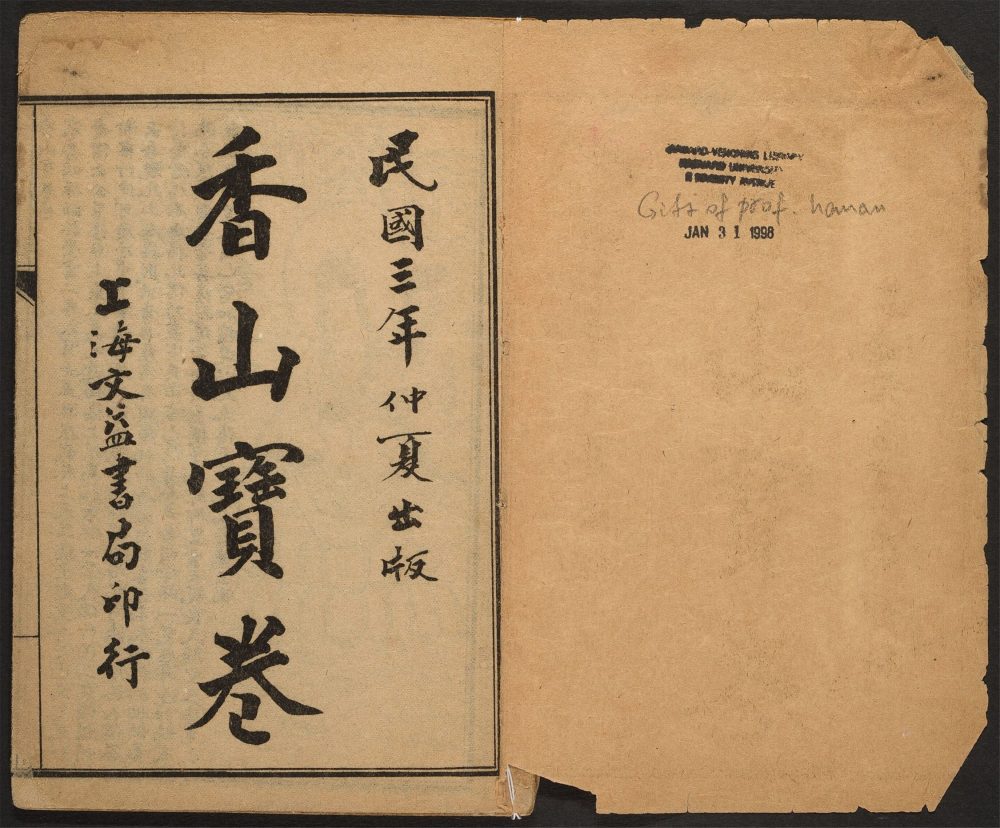 民國三年仲夏出版
香山寶卷
上海文益書局印行
HARVARD-YENCHING LIBRARY
HARVARD UNIVERSITY
2 DIVINITY AVENUE
Gift of prof. Hanan
JAN 31 1998